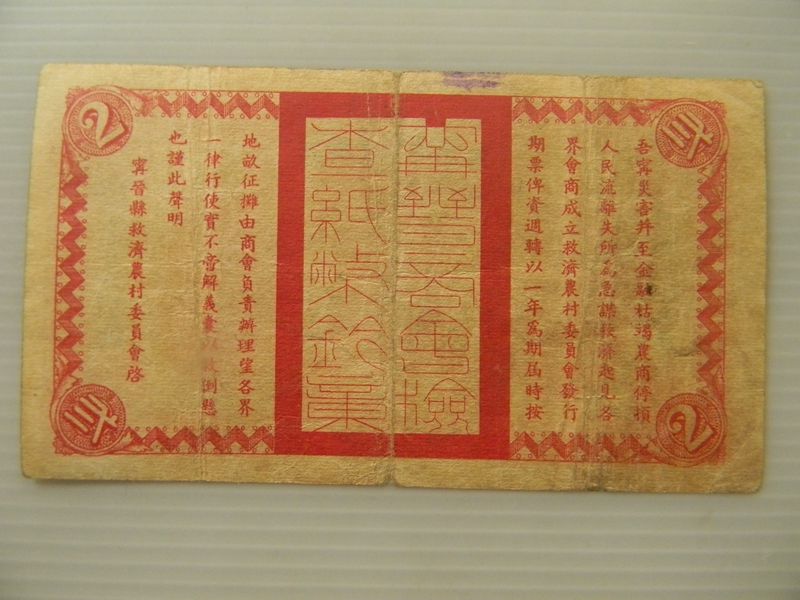 2
吾寧災害幷至金融枯竭農商停頓
人民流離失所為急謀救濟起見各
界會商成立救濟農村委員會發行
期票俾資週轉以一年為期屆時按
甯晉各會檢
查紙幣鈐章
地畝征攤由商會負責辦理望各界
一律行使實不啻解義囊以救倒懸
也謹此聲明
寧晉縣救濟農村委員會啓
2